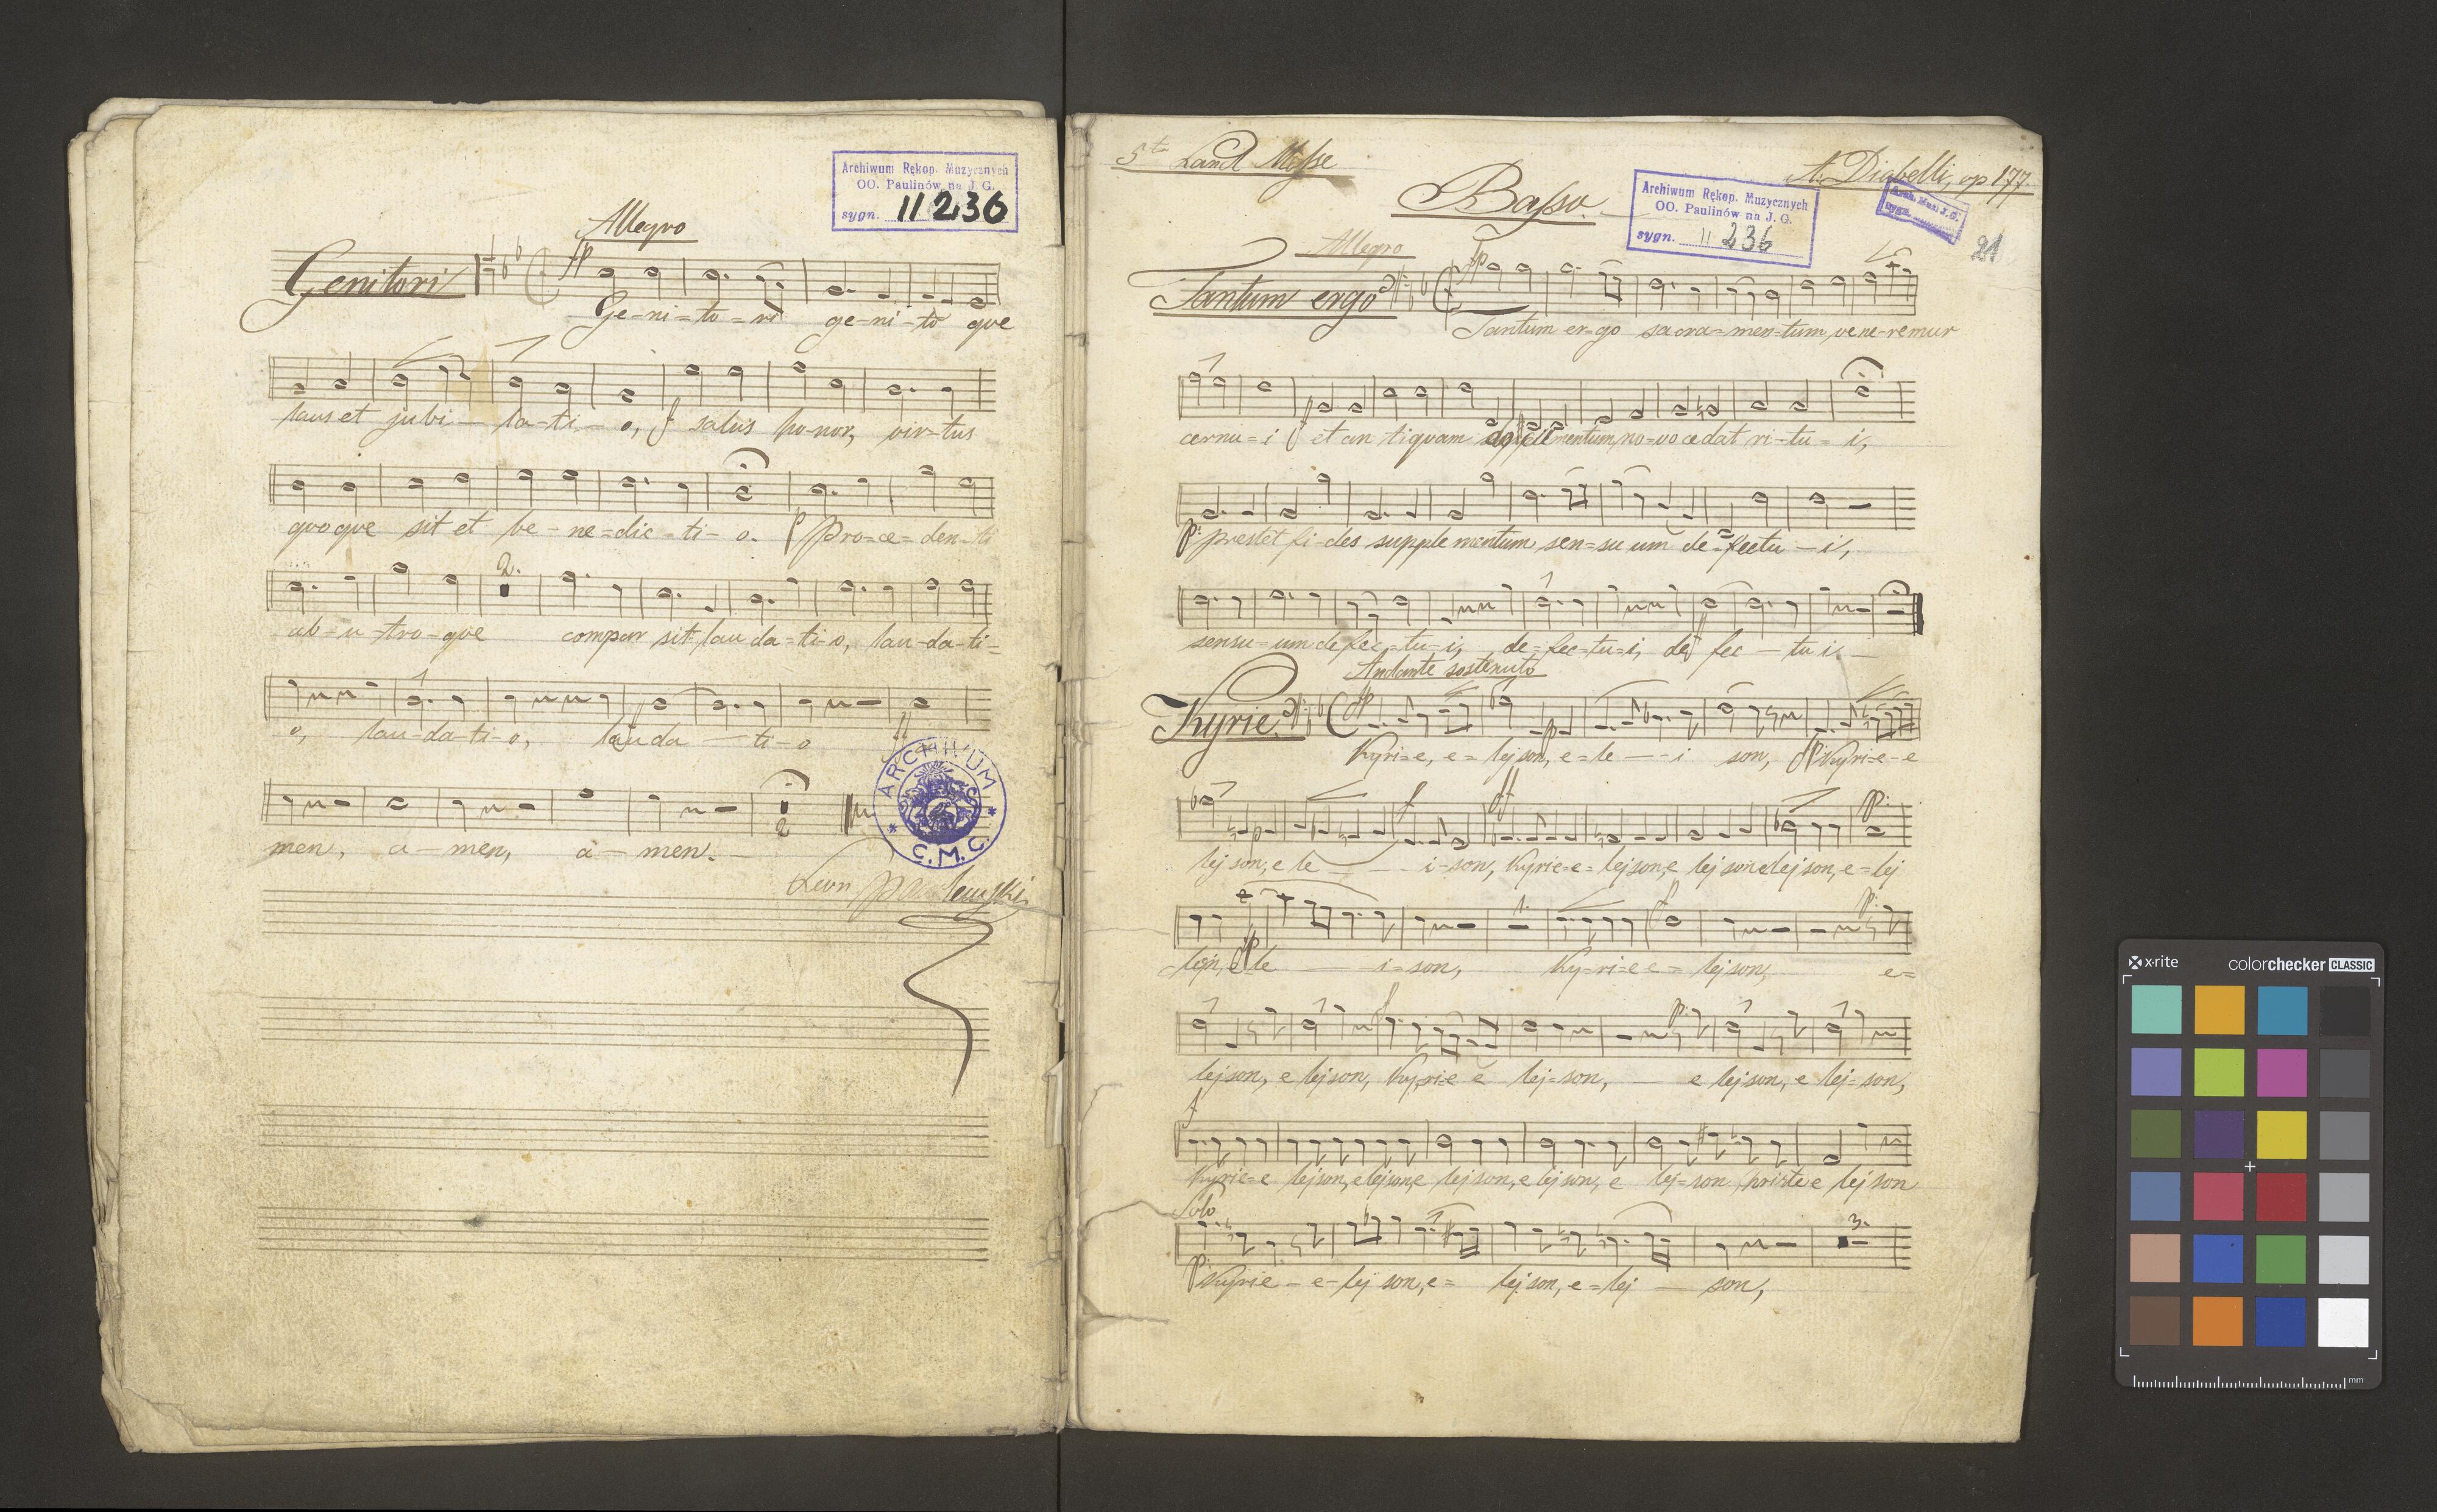 Archiwum Rękop. Muzycznych
OO. Paulinów na J. G.
sygn. II 236
Allegro
Genitori
Ge-ni=to=ri ge-ni-to que
laus et jubi — la-ti — o, f salus ho-nor, vir-tus
quoque sit et be-ne=dic-ti-o. p Pro=ce=den-ti
2.
ab-u-tro-que compar sit lau da=ti-o, lau-da-ti=
o, lau-da-ti-o, lauda — ti-o
ff
men, a-men, a-men.
2
ARCHIVUM
C.M.C.
Leon
5ta Land Messe
A. Diabelli, op 177.
Basso.
Archiwum Rękop. Muzycznych
OO. Paulinów na J. G.
sygn. II 236
Arch. Muz. J. G.
sygn.
21
Allegro
Tantum ergo
Tantum er=go sacra=men=tum, vene-remur
cernu=i f et an tiquam mentum, no=vo cedat ri-tu=i,
p: prestet fi-des supple mentum sen=su um de=fectu-i,
sensu=um defec=tu=i, de=fec=tu=i, def fec — tu i. —
Andante sostenuto
Kyrie.
Kyri=e, e=lejson, e=le — i son, Kyri=e-e
f ff p:
lej son, e le — i-son, Kyrie=e=lejson, e lej son e lej son, e=lej
1. f p:
le — i=son, Ky=ri=e e=lejson, e=
f p:
lejson, e lejson, Kyrie e lej=son, — e lejson, e lej=son,
f
Kyrie=e lejson, e lejson, e lejson, e lejson, e lej=son christe e lejson
Solo
3.
p: Kyrie — e-lej son, e= lej son, e=lej — son,
x·rite colorchecker CLASSIC
mm